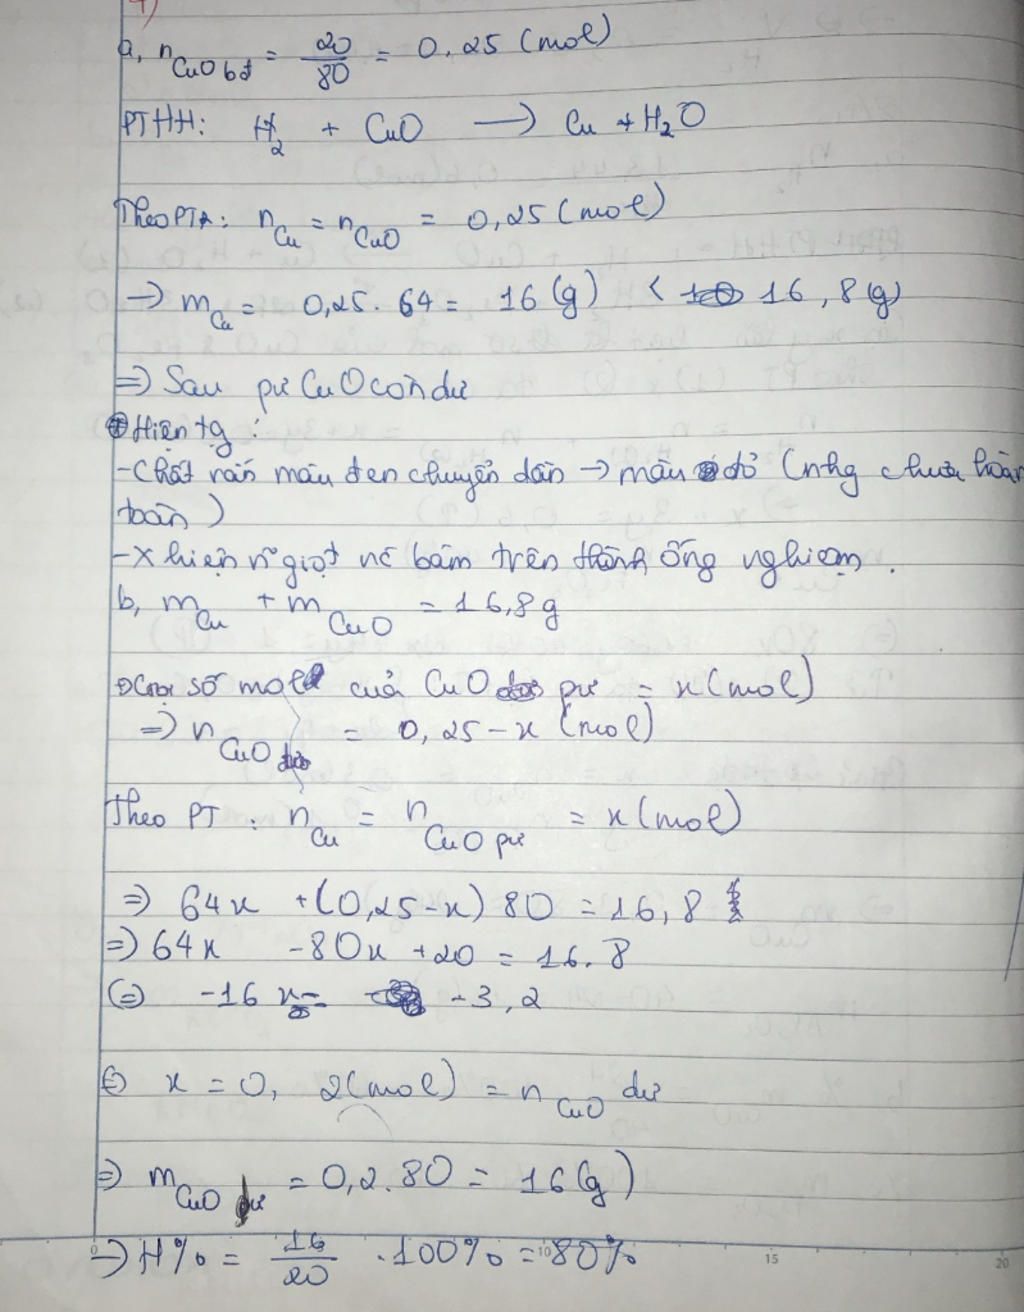 a, n CuO bđ = 20/80 = 0.25 (mol)
PTHH: H2 + CuO → Cu + H2O
Theo PT: nCu = nCuO = 0,25 (mol)
→ mCu = 0,25. 64 = 16 (g) < 16,8 (g)
⇒ Sau pư CuO còn dư
Hiện tg :
- Chất rắn màu đen chuyển dần → màu đỏ (nhg chưa hoàn
toàn)
- X hiện n~ giọt nc bám trên thành ống nghiệm.
b, mCu + mCuO = 16,8g
Gọi số mol của CuO pư = x (mol)
⇒ nCuO dư = 0,25 - x (mol)
Theo PT : nCu = nCuO pư = x (mol)
⇒ 64x + (0,25 - x) 80 = 16,8
⇒ 64x - 80x + 20 = 16.8
(=) -16 x = -3,2
(=) x = 0, 2 (mol) = nCuO dư
⇒ mCuO pư = 0,2. 80 = 16 (g)
→ H% = 16/20 . 100% = 80%
0 10 15 20